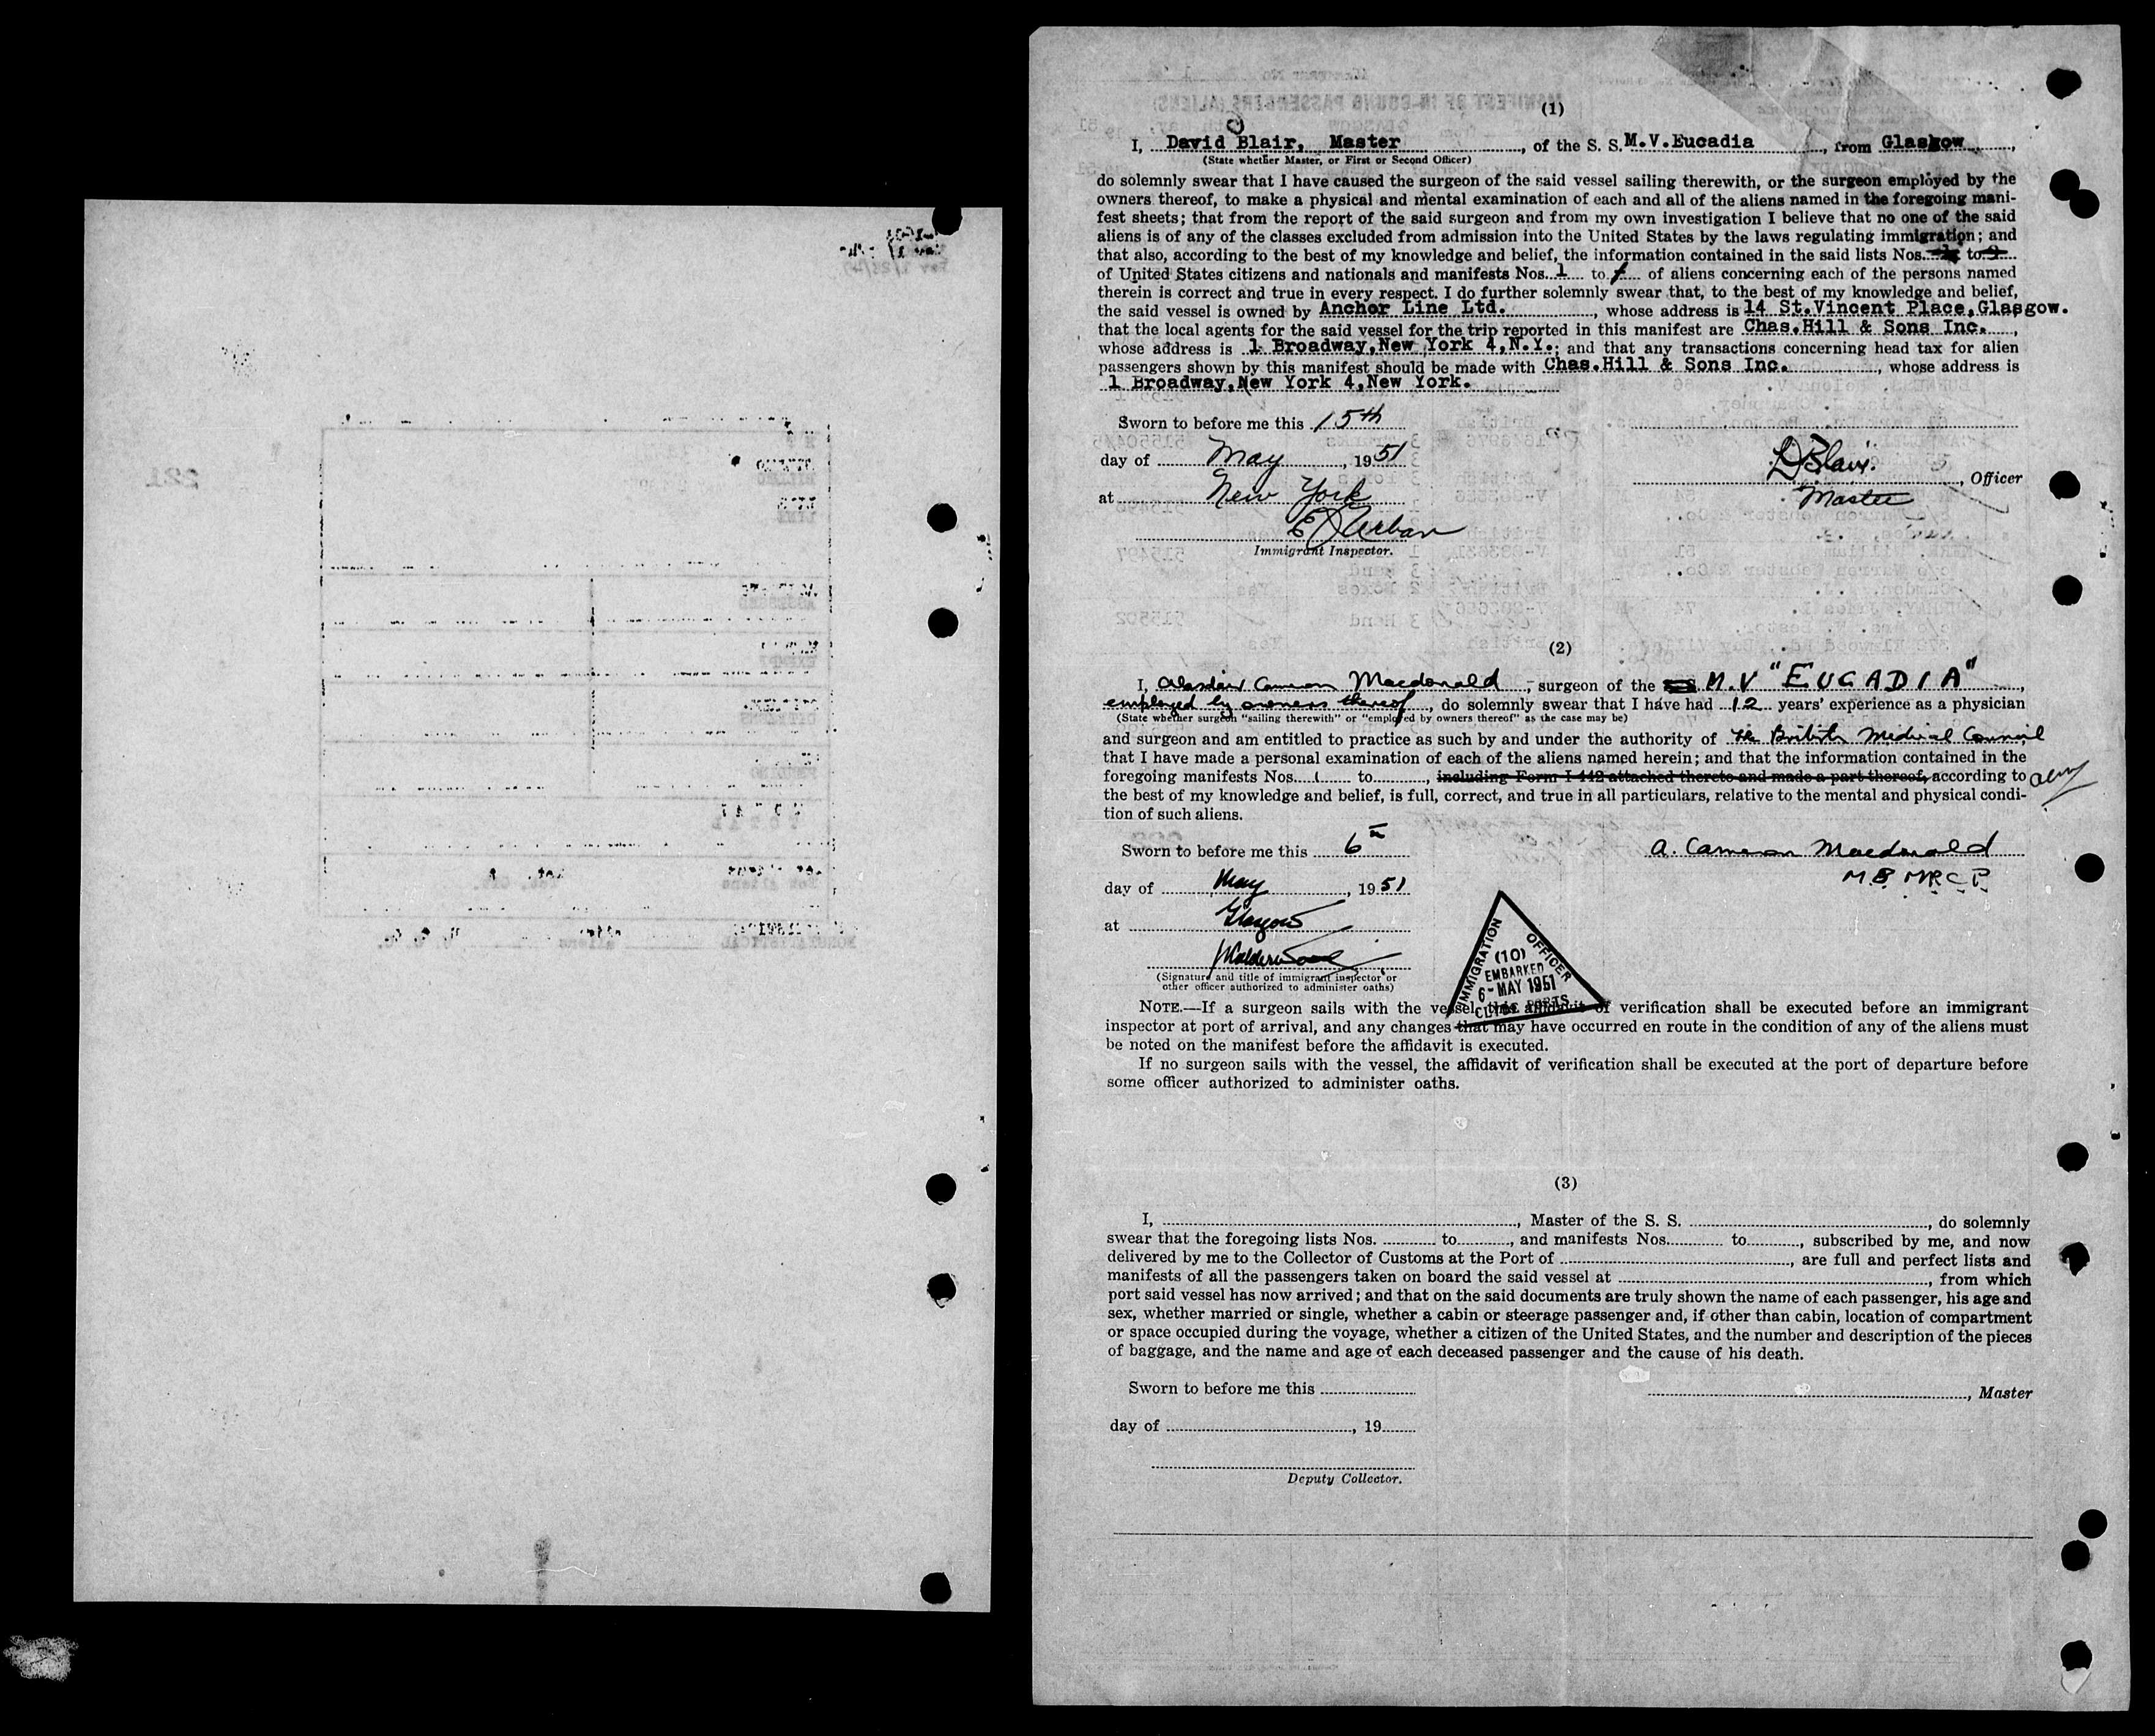 (1)
I, David Blair, Master, of the S. S. M.V.Eucadia, from Glasgow,
(State whether Master, or First or Second Officer)
do solemnly swear that I have caused the surgeon of the said vessel sailing therewith, or the surgeon employed by the
owners thereof, to make a physical and mental examination of each and all of the aliens named in the foregoing mani-
fest sheets; that from the report of the said surgeon and from my own investigation I believe that no one of the said
aliens is of any of the classes excluded from admission into the United States by the laws regulating immigration; and
that also, according to the best of my knowledge and belief, the information contained in the said lists Nos. to
of United States citizens and nationals and manifests Nos. 1 to of aliens concerning each of the persons named
therein is correct and true in every respect. I do further solemnly swear that, to the best of my knowledge and belief,
the said vessel is owned by Anchor Line Ltd., whose address is 14 St.Vincent Place,Glasgow.
that the local agents for the said vessel for the trip reported in this manifest are Chas.Hill & Sons Inc.,
whose address is 1 Broadway,New York 4,N.Y.; and that any transactions concerning head tax for alien
passengers shown by this manifest should be made with Chas.Hill & Sons Inc., whose address is
1 Broadway,New York 4,New York.
Sworn to before me this 15th
day of May, 1951
D Blair. , Officer
Master
at New York
E Urban
Immigrant Inspector.
(2)
I, Alasdair Cameron Macdonald, surgeon of the M.V "EUCADIA",
employed by owners thereof, do solemnly swear that I have had 12 years' experience as a physician
(State whether surgeon "sailing therewith" or "employed by owners thereof" as the case may be)
and surgeon and am entitled to practice as such by and under the authority of the British Medical Council
that I have made a personal examination of each of the aliens named herein; and that the information contained in the
foregoing manifests Nos. 1 to, including Form I-442 attached thereto and made a part thereof, according to
the best of my knowledge and belief, is full, correct, and true in all particulars, relative to the mental and physical condi-
tion of such aliens.
Sworn to before me this 6th
A. Cameron Macdonald
M.B. M.R.C.P.
day of May, 1951
at Glasgow
(Signature and title of immigrant inspector or
other officer authorized to administer oaths)
IMMIGRATION OFFICER
(10)
EMBARKED
6-MAY 1951
CLYDE PORTS
NOTE.—If a surgeon sails with the vessel, this affidavit of verification shall be executed before an immigrant
inspector at port of arrival, and any changes that may have occurred en route in the condition of any of the aliens must
be noted on the manifest before the affidavit is executed.
If no surgeon sails with the vessel, the affidavit of verification shall be executed at the port of departure before
some officer authorized to administer oaths.
(3)
I, , Master of the S. S. , do solemnly
swear that the foregoing lists Nos. to , and manifests Nos. to , subscribed by me, and now
delivered by me to the Collector of Customs at the Port of , are full and perfect lists and
manifests of all the passengers taken on board the said vessel at , from which
port said vessel has now arrived; and that on the said documents are truly shown the name of each passenger, his age and
sex, whether married or single, whether a cabin or steerage passenger and, if other than cabin, location of compartment
or space occupied during the voyage, whether a citizen of the United States, and the number and description of the pieces
of baggage, and the name and age of each deceased passenger and the cause of his death.
Sworn to before me this
, Master
day of , 19
Deputy Collector.